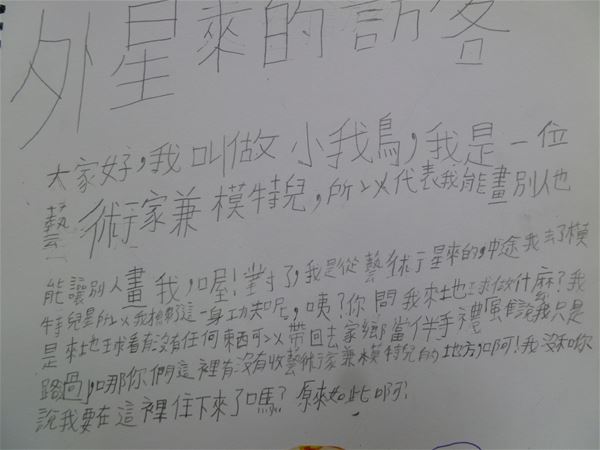 外星來的訪客
大家好,我叫做小我鳥,我是一位
藝術家兼模特兒,所以代表我能畫別人也
能讓別人畫我,喔!對了,我是從藝術行星來的,中途我去了模
特兒星所以我擔起這一身功夫呢,咦?你問我來地球做什麻?我
是來地球看有沒有任何東西可以帶回去家鄉當伴手禮風隹說我只是
路過,哪那你們這裡有沒有收藝術家兼模特兒的地方,啊!我沒和你
說我要在這裡住下來了嗎?原來如此啊!